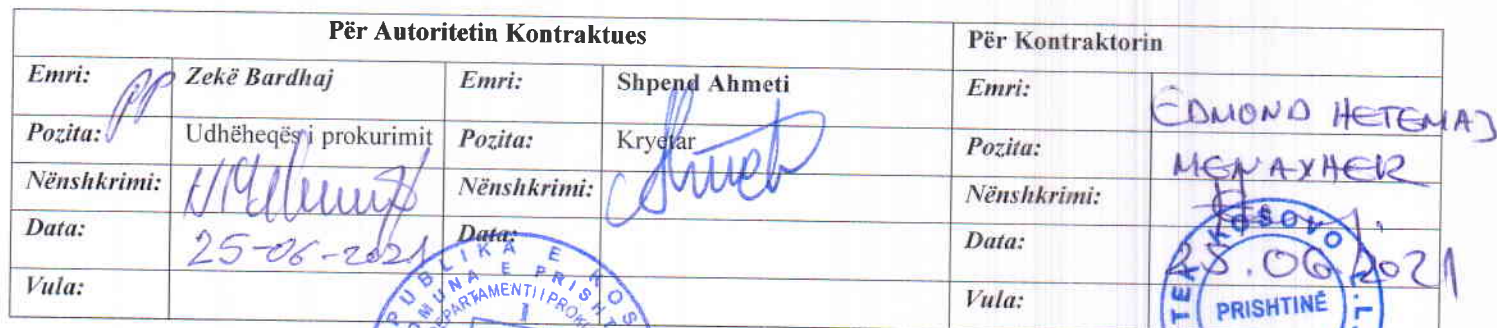 Për Autoritetin Kontraktues Për Kontraktorin
Emri: pp Zekë Bardhaj Emri: Shpend Ahmeti Emri: EDMOND HETEMAJ
Pozita: Udhëheqës i prokurimit Pozita: Kryetar Pozita: MENAXHER
Nënshkrimi: Nënshkrimi: Nënshkrimi:
Data: 25-06-2021 Data: Data: 25.06.2021
Vula: Vula:
PUBLIKA E KOS
MUNA E PRISHT
DEPARTAMENTI I PROKU
KOSOVO
PRISHTINË